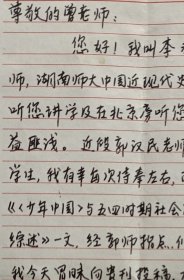 尊敬的曾老师：
您好！我叫李
师，湖南师大中国近现代史
听您讲学及在北京聆听您
益匪浅。近段郭汉民老师
学生，我有幸每次侍奉左右，
《《少年中国》与五四时期社会
综述》一文，经郭师指点，
我今天冒昧向贵刊投稿